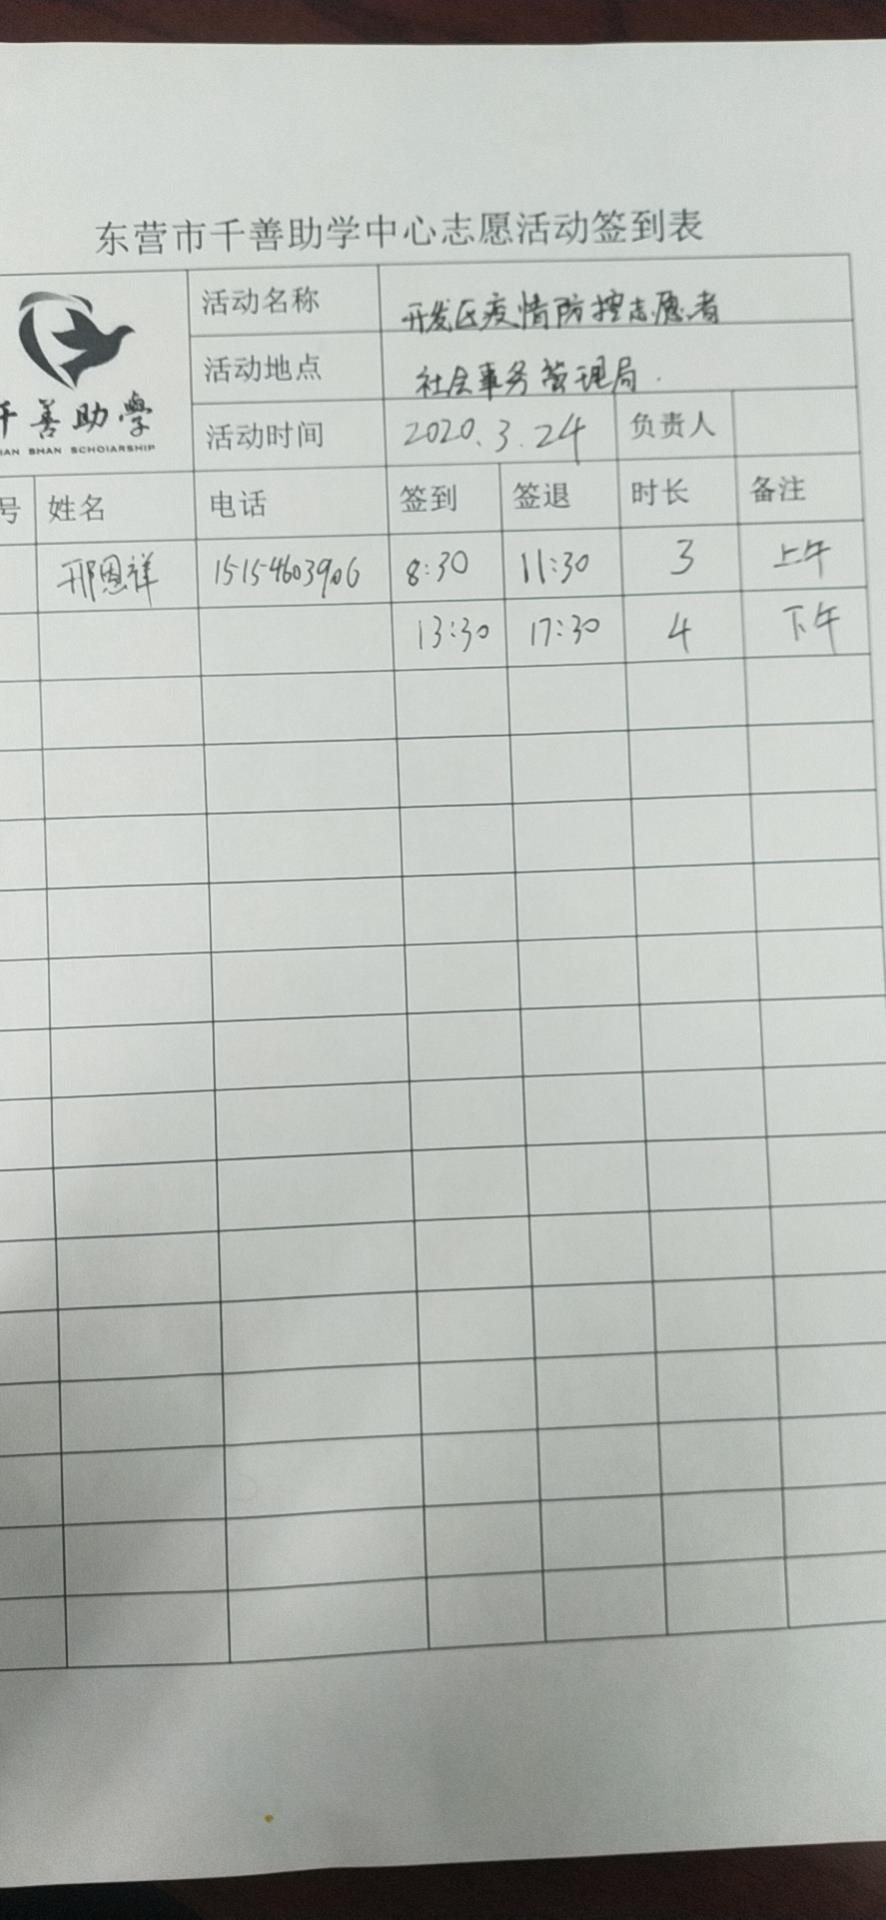 东营市千善助学中心志愿活动签到表
千善助學
IAN SHAN SCHOIARSHIP
活动名称 开发区疫情防控志愿者
活动地点 社会事务管理局.
活动时间 2020.3.24 负责人
号 姓名 电话 签到 签退 时长 备注
邢恩祥 15154603906 8:30 11:30 3 上午
13:30 17:30 4 下午